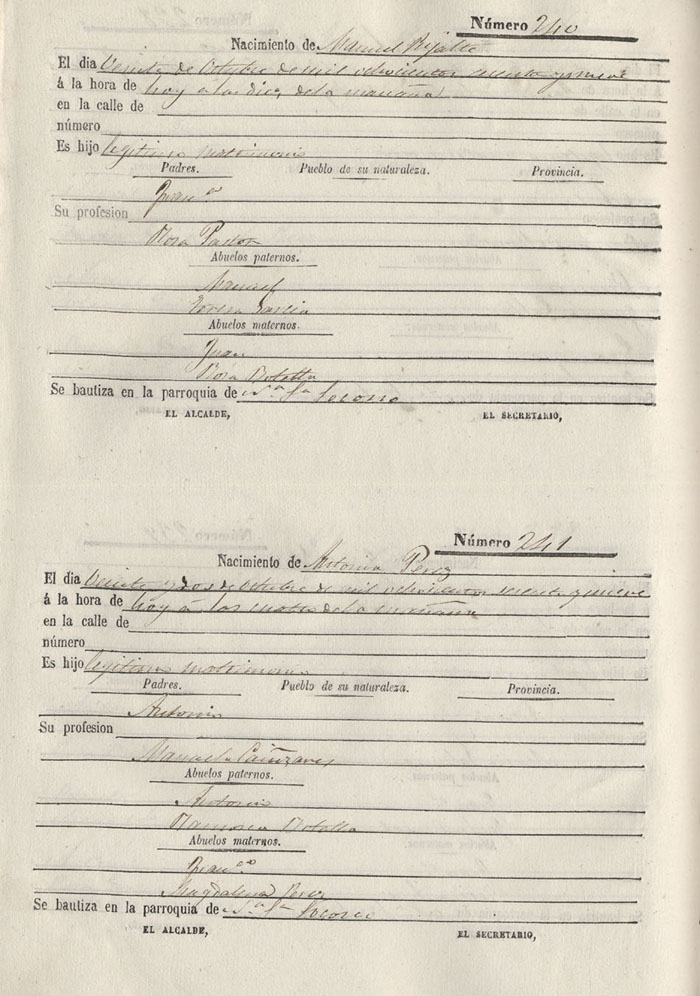 Número 240
Nacimiento de Manuel Rijalte
El dia Veinte de Octubre de mil ochocientos sesenta y nueve
á la hora de hoy a las diez de la mañana
en la calle de
número
Es hijo legitimo matrimonio
Padres. Pueblo de su naturaleza. Provincia.
Franco
Su profesion
Rosa Pastor
Abuelos paternos.
Manuel
Teresa Garcia
Abuelos maternos.
Juan
Rosa Botella
Se bautiza en la parroquia de Na Sa Socorro
EL ALCALDE, EL SECRETARIO,
Número 241
Nacimiento de Antonia Perez
El dia Veinte y dos de Octubre de mil ochocientos sesenta y nueve
á la hora de hoy á las cuatro de la mañana
en la calle de
número
Es hijo legitimo matrimonio
Padres. Pueblo de su naturaleza. Provincia.
Antonio
Su profesion
Manuela Cañizares
Abuelos paternos.
Antonio
Ramona Botella
Abuelos maternos.
Franco
Magdalena Perez
Se bautiza en la parroquia de Na Sa Socorro
EL ALCALDE, EL SECRETARIO,